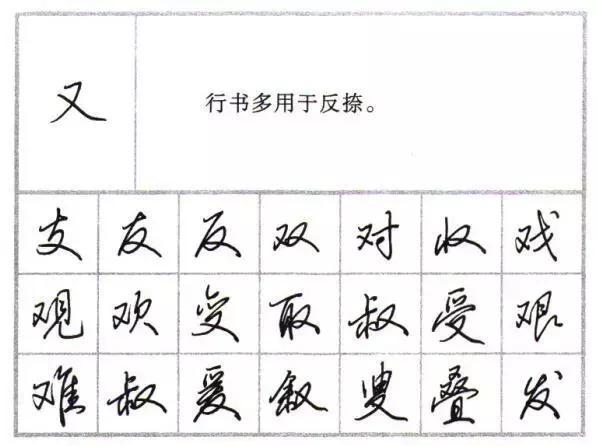 又
行书多用于反捺。
支 友 反 双 对 収 戏
观 欢 变 取 叔 受 艰
难 叔 爰 叙 叟 叠 发